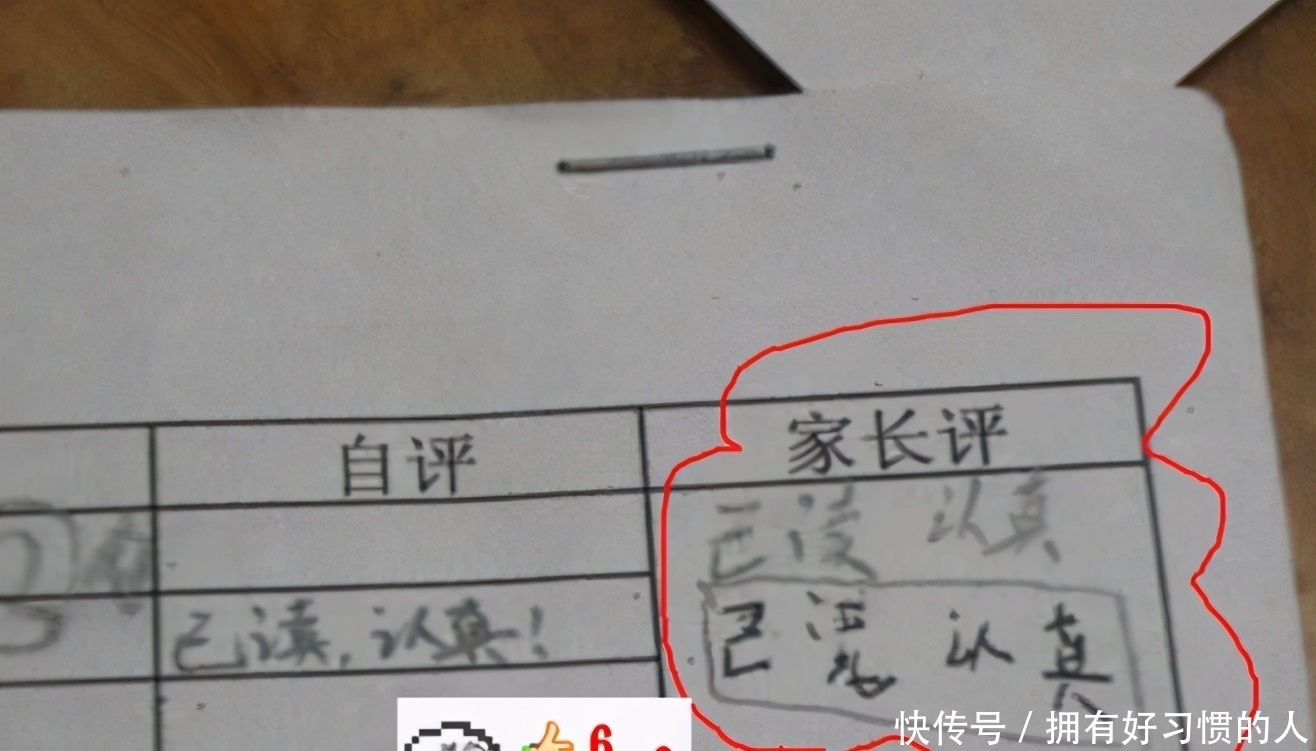 自评 家长评
已读 认真
已读,认真! 已 认真
6
快传号 / 拥有好习惯的人